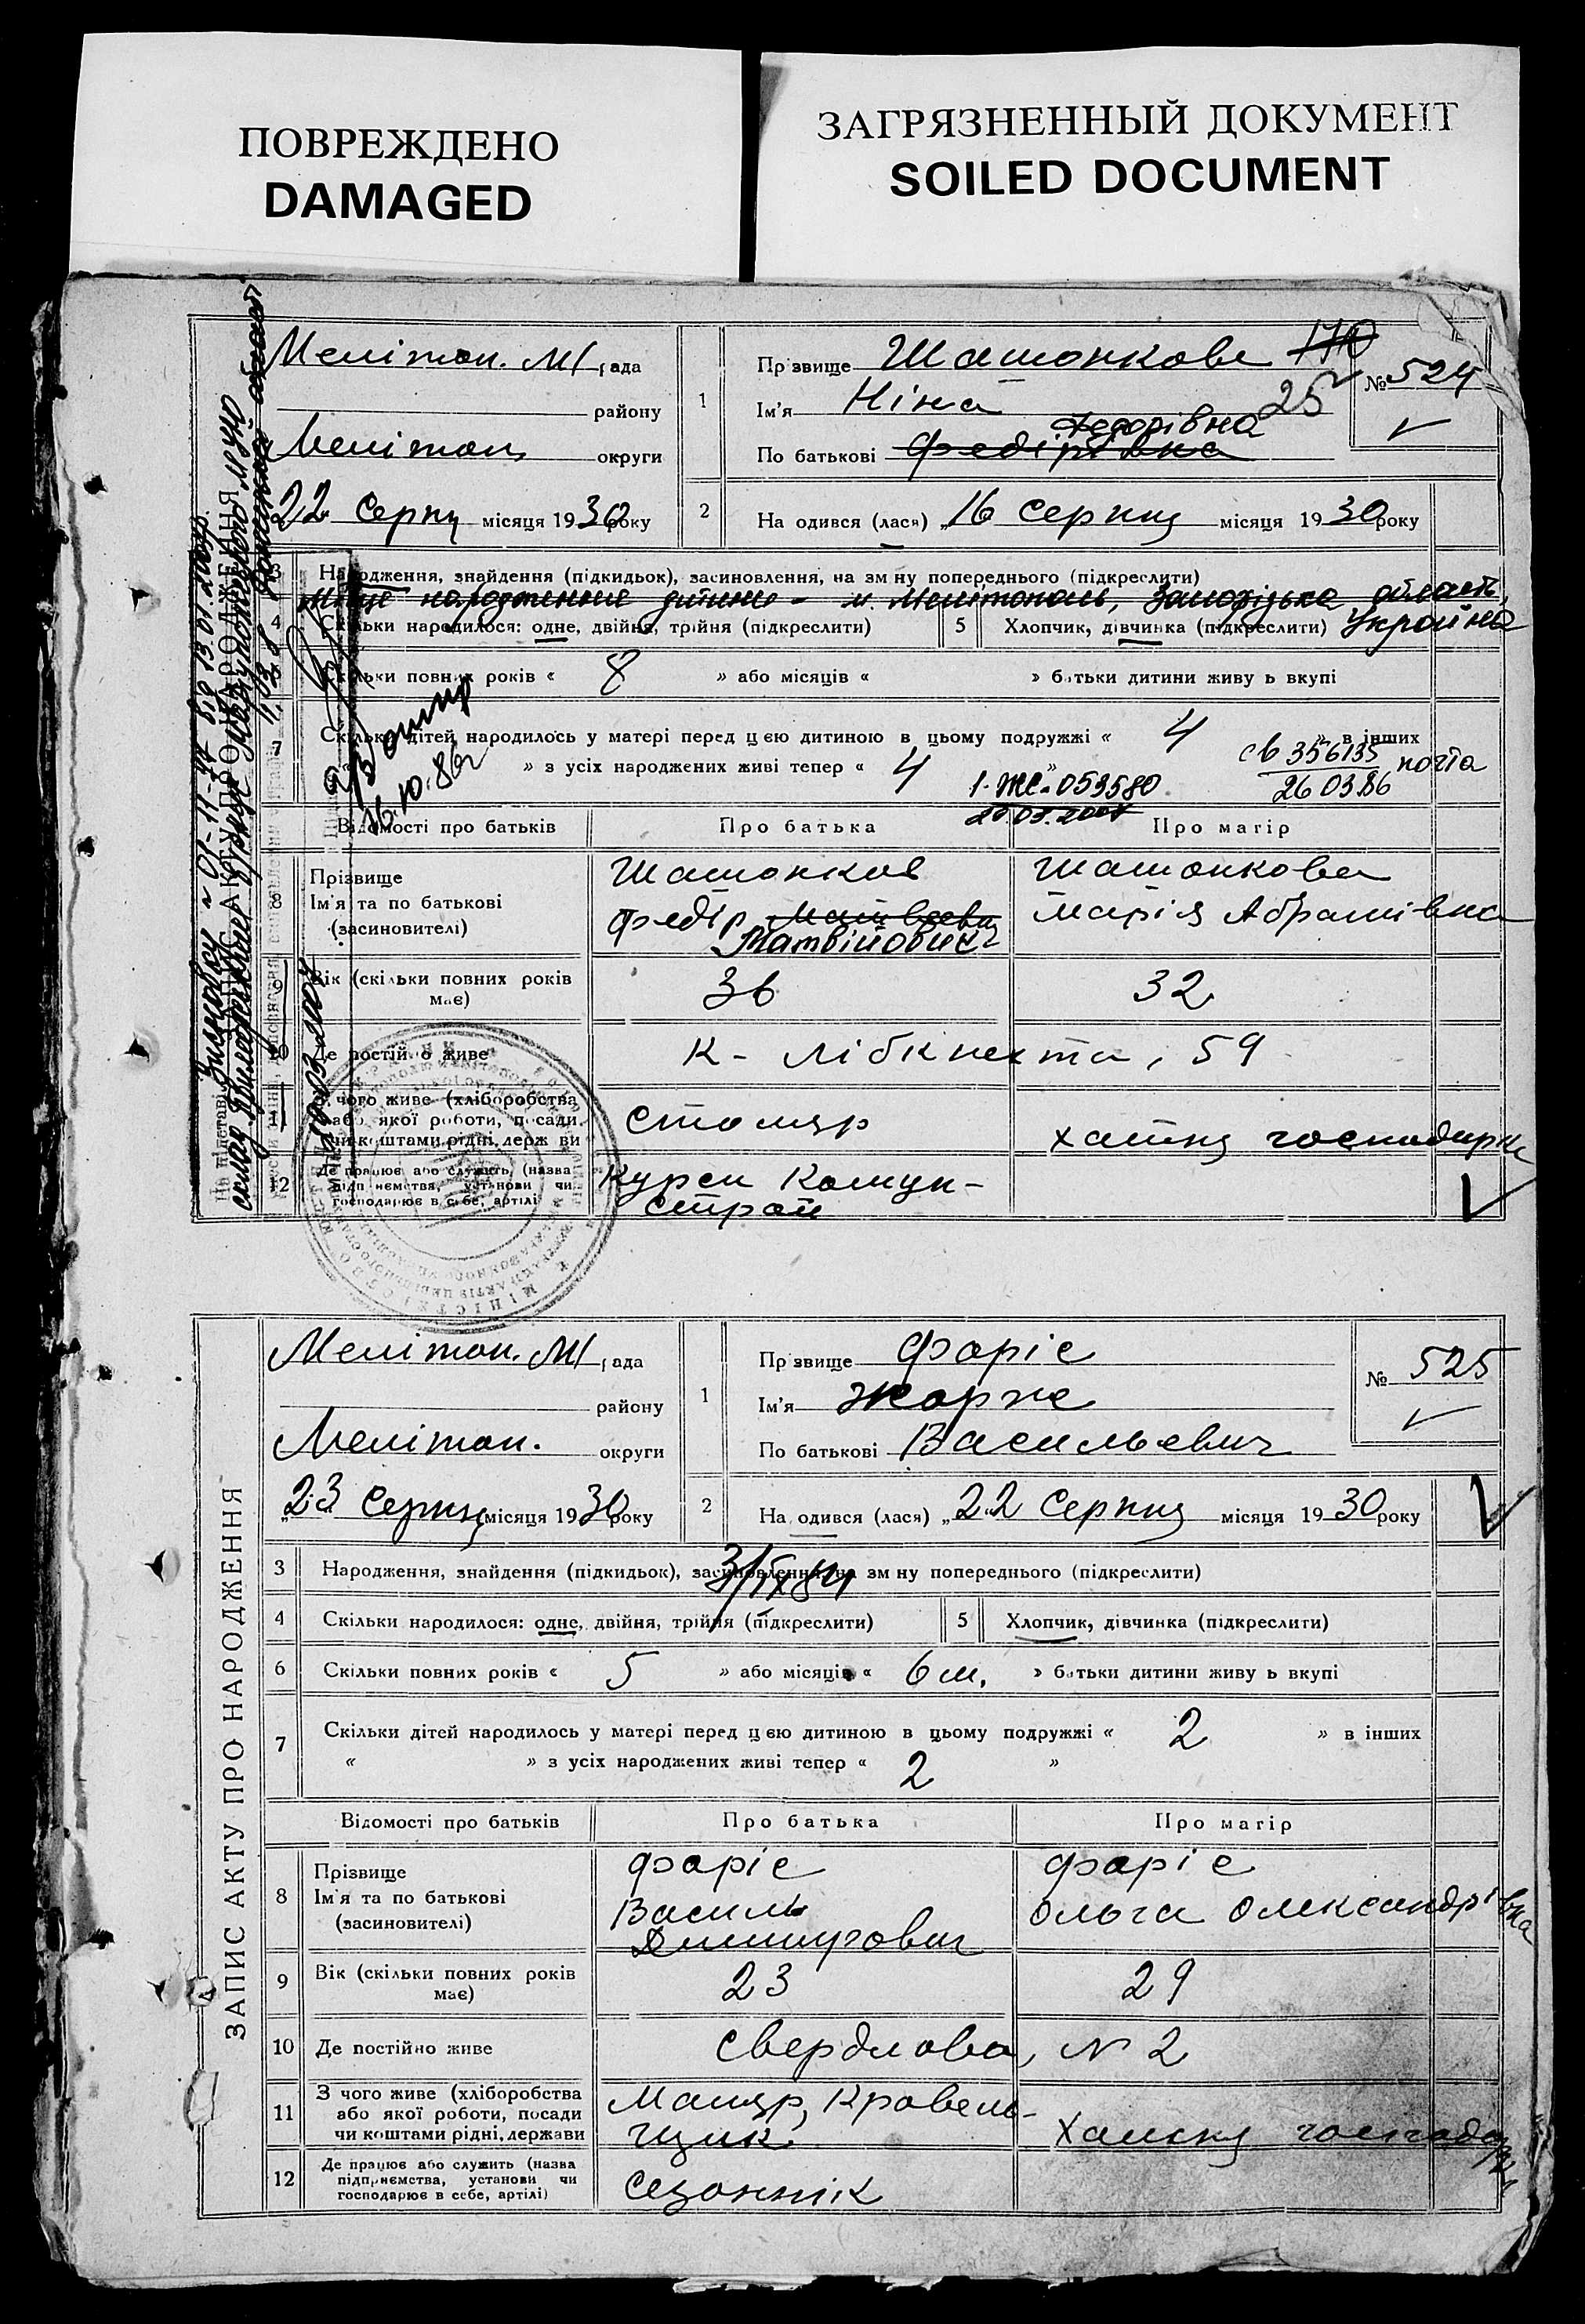 ПОВРЕЖДЕНО
DAMAGED
ЗАГРЯЗНЕННЫЙ ДОКУМЕНТ
SOILED DOCUMENT
Меліт​оп. М/ рада
району
Меліт​оп. округи
22 Серпн місяця 1930 року
1
Прізвище Шатонкова 170
Ім'я Ніна 25
По батькові Федірівна Федорівна
№ 524
2
Народився (лася) „16 Серпня місяця 1930 року
3 Народження, знайдення (підкидьок), засиновлення, на зміну попереднього (підкреслити)
Місце народження дитини - м. Мелітополь, Запорізька область,
Україна
4 Скільки народилося: одне, двійня, трійня (підкреслити)
5 Хлопчик, дівчинка (підкреслити)
Скільки повних років « 8 » або місяців « » батьки дитини живуть вкупі
7 Скільки дітей народилось у матері перед цією дитиною в цьому подружжі « 4 » в інших
» з усіх народжених живі тепер « 4 »
св 356135 почта
26 03 86
1-ЖС-053580
16.10.86г
Відомості про батьків
Про батька
Про матір
8 Прізвище
Ім'я та по батькові
(засиновителі)
Шатонков
Федір Матвеевич
Матвійович
Шатонкова
Марія Абрамівна
9 Вік (скільки повних років
має)
36
32
10 Де постійно живе
К- Лібкнехта, 59
11 З чого живе (хліборобства
або якої роботи, посади
чи коштами рідні, держави
столяр
хатня господарк
12 Де працює або служить (назва
підприємства, установи чи
господарює в себе, артілі)
Курси Комун-
строй
ЗАПИС АКТУ ПРО НАРОДЖЕННЯ
Меліт​оп. М/ рада
району
Меліт​оп. округи
„23 Серпня місяця 1930 року
1
Прізвище Фаріс
Ім'я Жорж
По батькові Васильевич
№ 525
2
Народився (лася) „22 Серпня місяця 1930 року
3 Народження, знайдення (підкидьок), засиновлення, на зміну попереднього (підкреслити)
3/IX 84
4 Скільки народилося: одне, двійня, трійня (підкреслити)
5 Хлопчик, дівчинка (підкреслити)
6 Скільки повних років « 5 » або місяців « 6 м. » батьки дитини живуть вкупі
7 Скільки дітей народилось у матері перед цією дитиною в цьому подружжі « 2 » в інших
« » з усіх народжених живі тепер « 2 »
Відомості про батьків
Про батька
Про матір
8 Прізвище
Ім'я та по батькові
(засиновителі)
Фаріс
Василь
Фаріс
Ольга Олександрівна
9 Вік (скільки повних років
має)
23
29
10 Де постійно живе
Свердлова, N 2
11 З чого живе (хліборобства
або якої роботи, посади
чи коштами рідні, держави
Маляр, Кровель-
щик
Хатня господарк
12 Де працює або служить (назва
підприємства, установи чи
господарює в себе, артілі)
Сезоннік
ЗАПИС АКТУ ПРО НАРОДЖЕННЯ